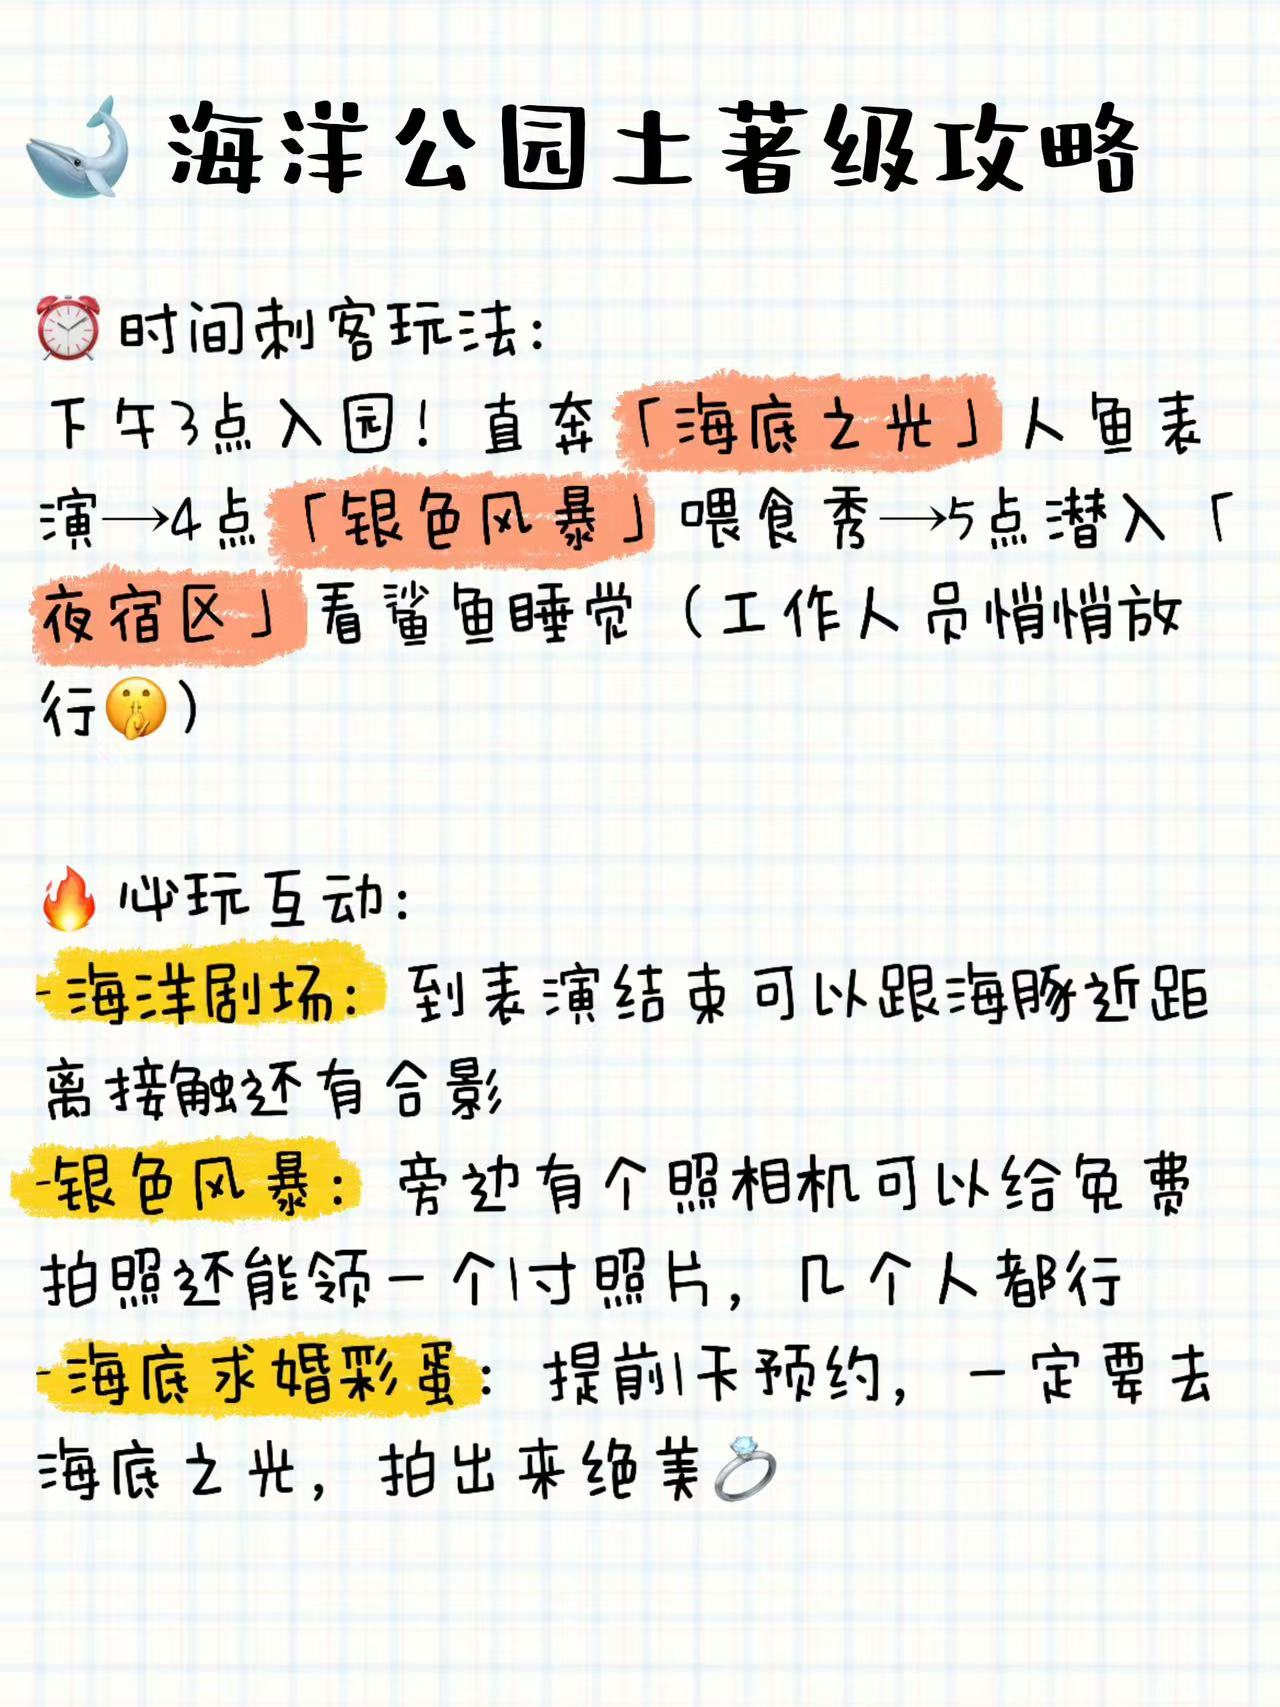 🐋 海洋公园土著级攻略
⏰ 时间刺客玩法：
下午3点入园！直奔「海底之光」人鱼表
演→4点「银色风暴」喂食秀→5点潜入「
夜宿区」看鲨鱼睡觉（工作人员悄悄放
行🤫）
🔥 必玩互动：
-海洋剧场：到表演结束可以跟海豚近距
离接触还有合影
-银色风暴：旁边有个照相机可以给免费
拍照还能领一个1寸照片，几个人都行
-海底求婚彩蛋：提前1天预约，一定要去
海底之光，拍出来绝美💍